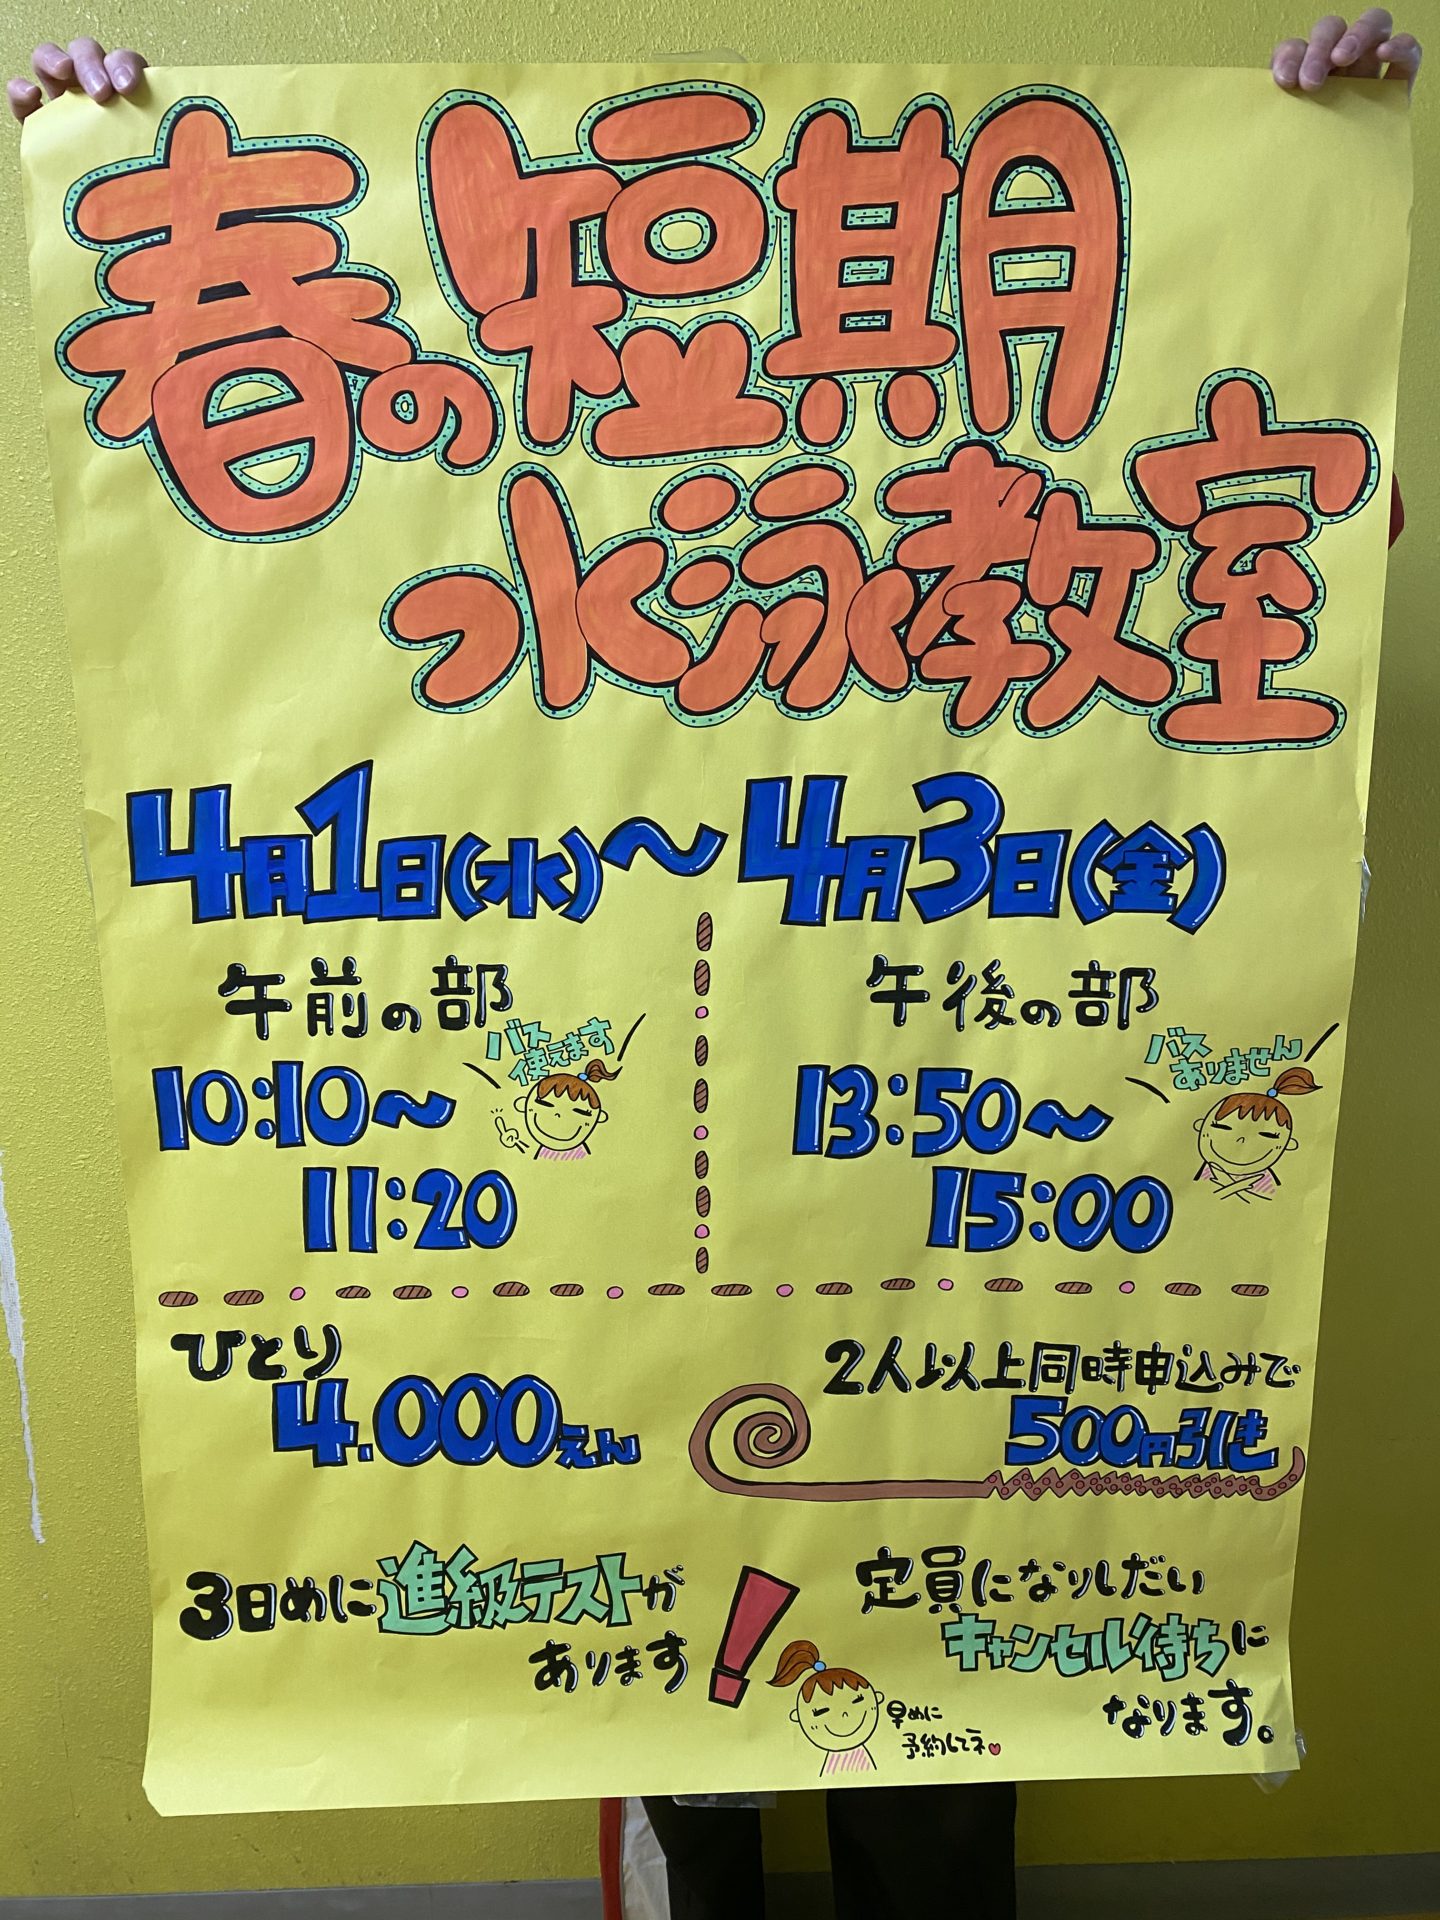 春の短期
水泳教室
4月1日(水)〜4月3日(金)
午前の部
バス
使えます
10:10〜
11:20
午後の部
バス
ありません
13:50〜
15:00
ひとり
4.000えん
2人以上同時申込みで
500円引き
3日めに進級テストが
あります!
定員になりしだい
キャンセル待ちに
なります。
早めに
予約してネ♥